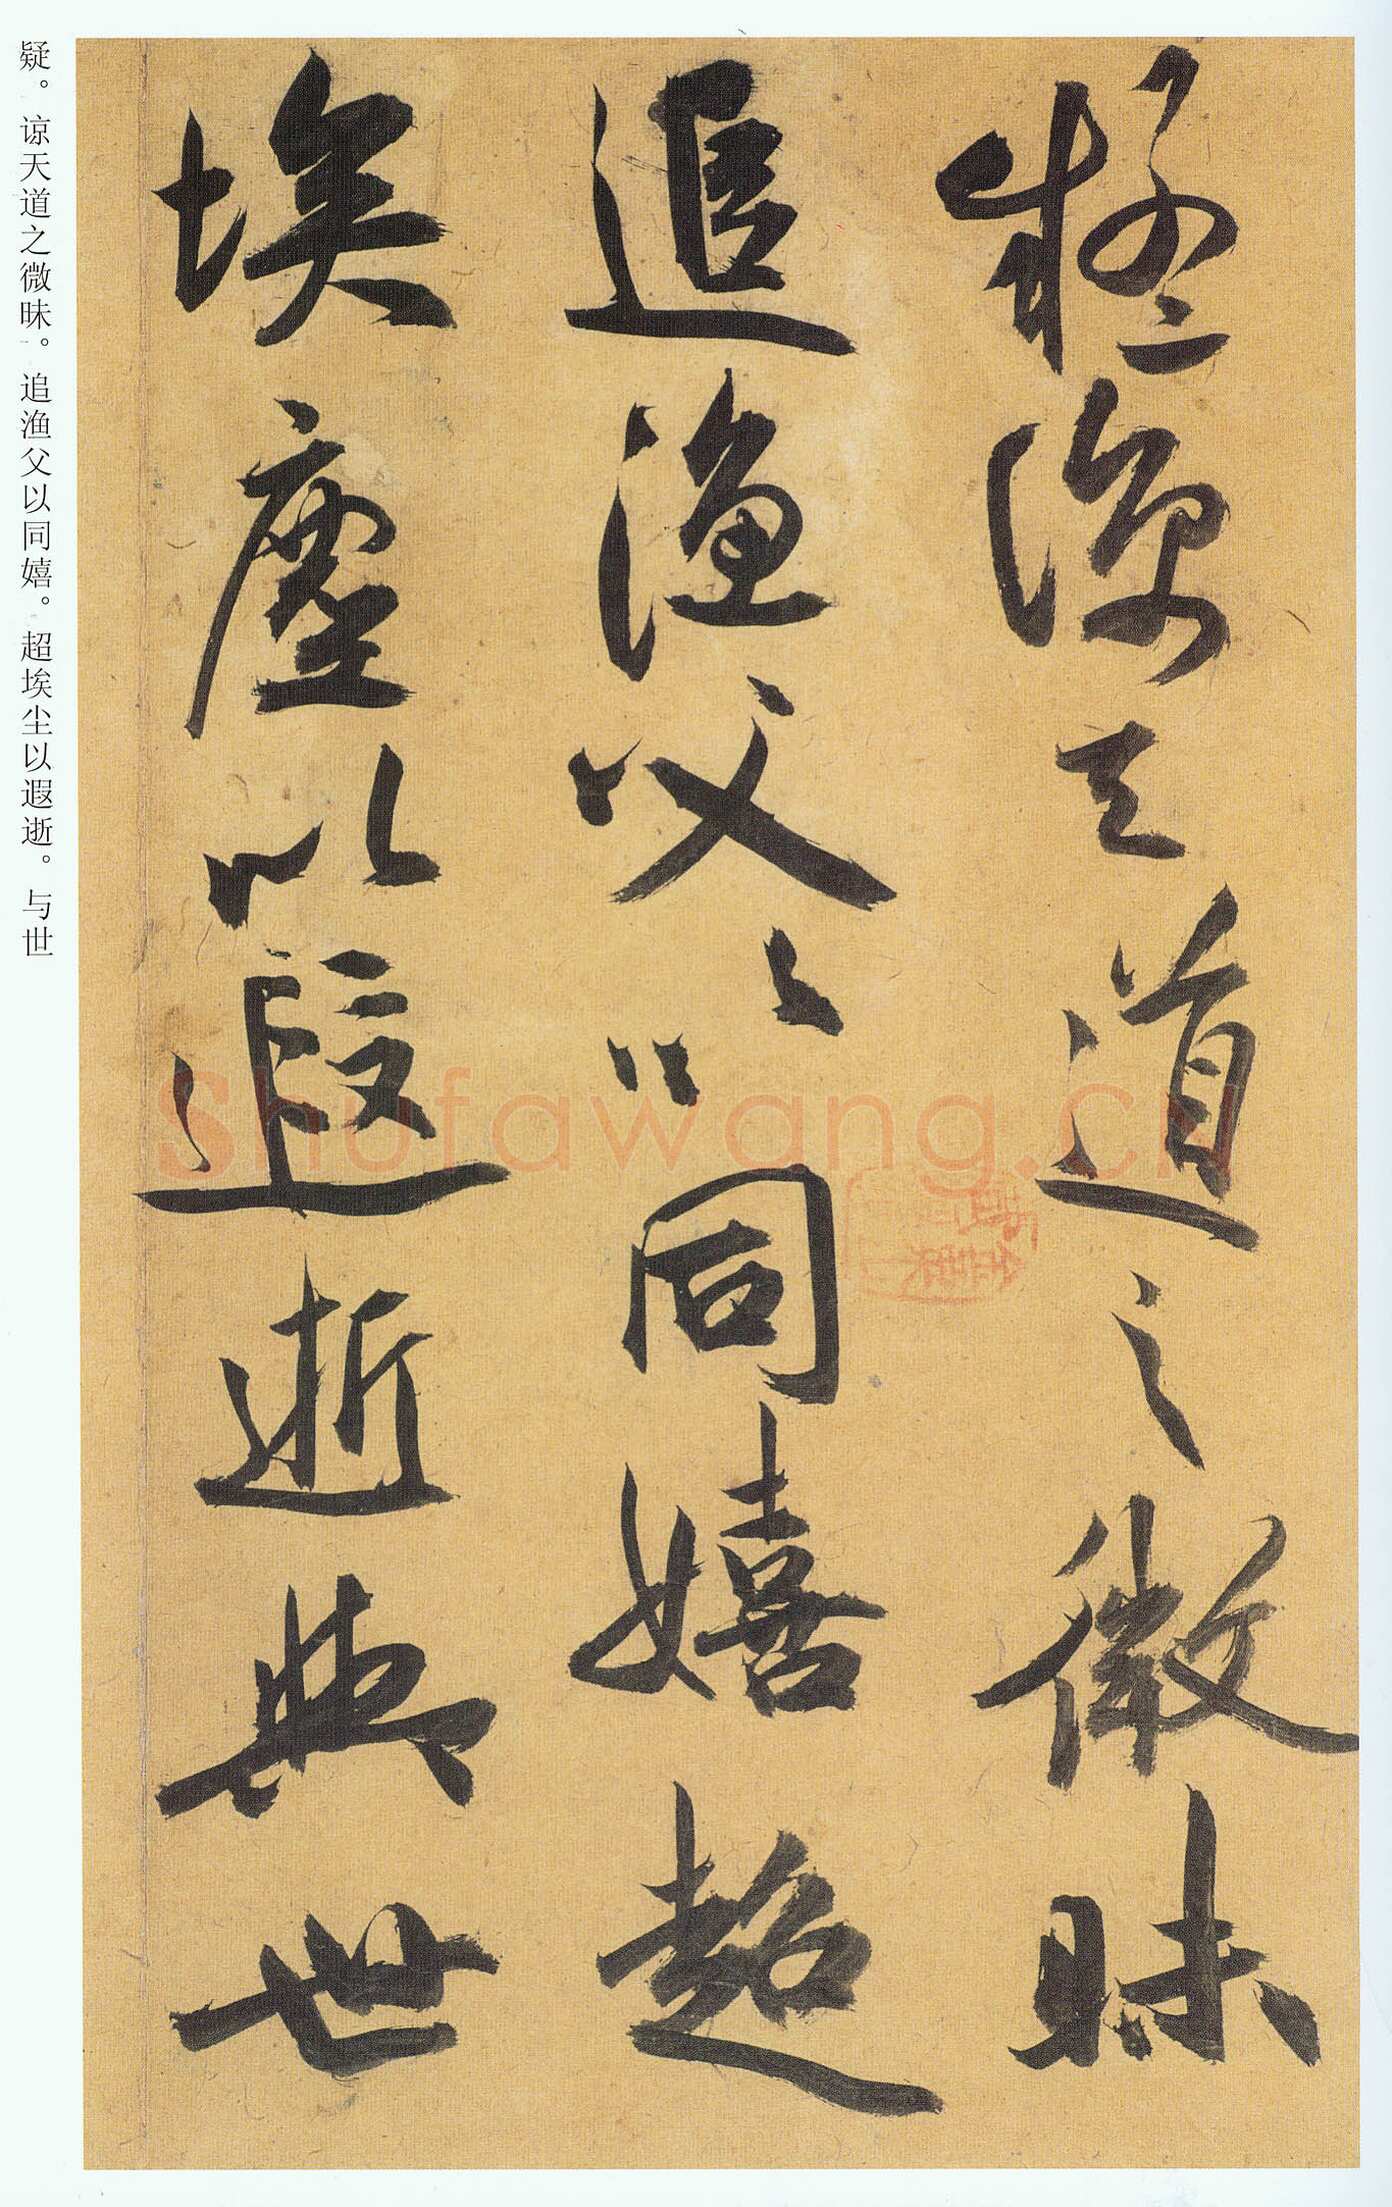 疑諒天道之微昧
追漁父以同嬉超
埃塵以遐逝與世
疑。谅天道之微昧。追渔父以同嬉。超埃尘以遐逝。与世
shufawang.cn